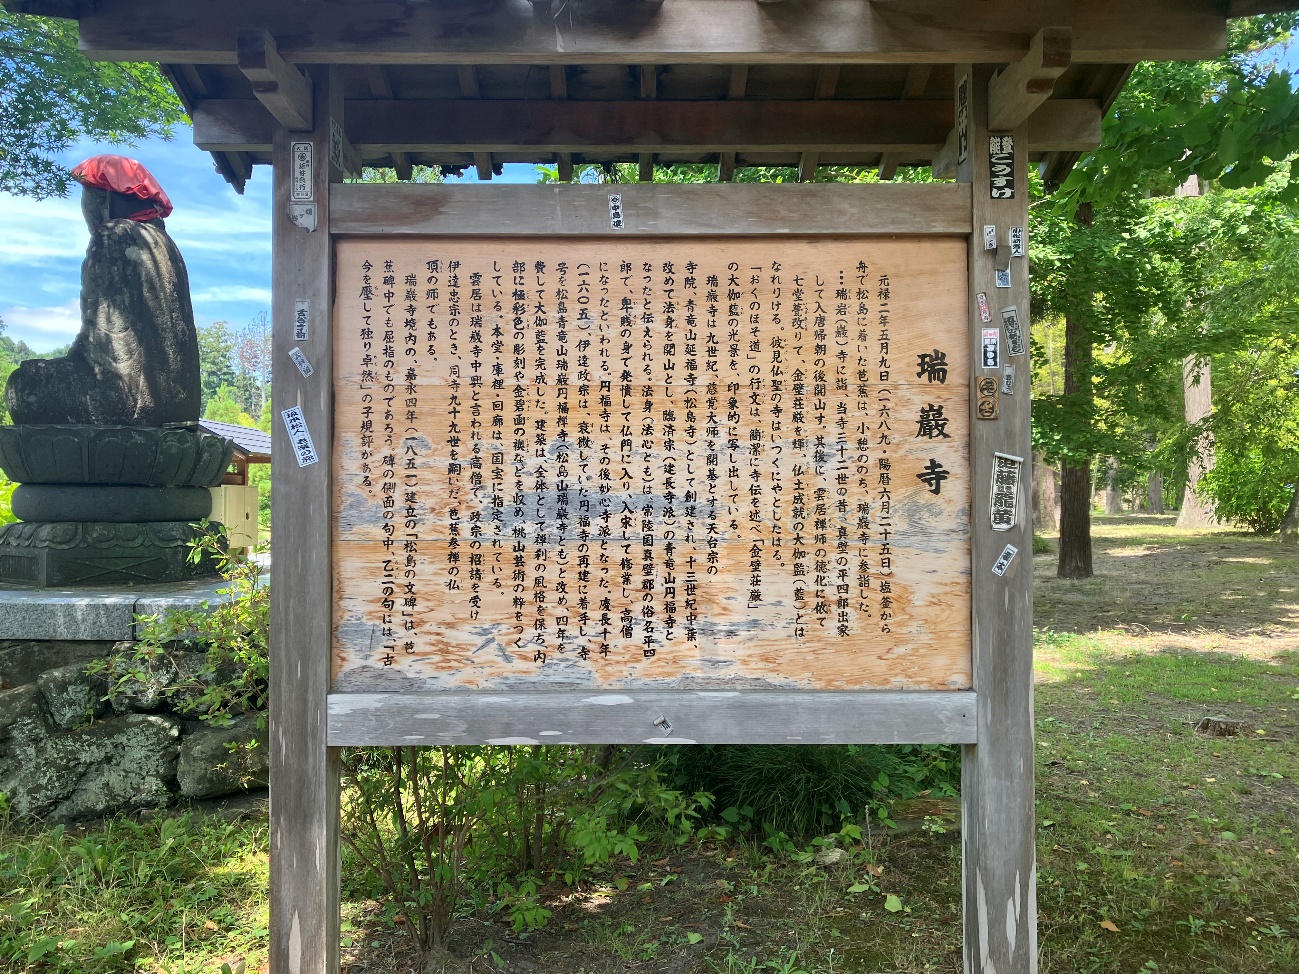 瑞巌寺
元禄二年五月九日（一六八九・陽暦六月二十五日）塩釜から
舟で松島に着いた芭蕉は、小憩ののち、瑞巌寺に参詣した。
…瑞岩（巌）寺に詣、当寺三十二世の昔、真壁の平四郎出家
して入唐帰朝の後開山す。其後に、雲居禅師の徳化に依て
七堂甍改りて、金壁荘厳光を輝、仏土成就の大伽監（藍）とは
なれりける。彼見仏聖の寺はいづくにやとしたはる。
「おくのほそ道」の行文は、簡潔に寺伝を述べ「金壁荘厳」
の大伽藍の光景を、印象的に写し出している。
瑞巌寺は九世紀、慈覚大師を開基とする天台宗の
寺院、青竜山延福寺（松島寺）として創建され、十三世紀中葉、
改めて法身を開山とし、臨済宗（建長寺派）の青竜山円福寺と
なったと伝えられる。法身（法心とも）は常陸国真壁郡の俗名平四
郎で、卑賎の身で発憤して仏門に入り、入宋して修業し、高僧
になったといわれる。円福寺は、その後妙心寺派となった。慶長十年
（一六〇五）伊達政宗は、衰微していた円福寺の再建に着手し、寺
号を松島青竜山瑞巌円福禅寺（松島山瑞巌寺とも）と改め、四年を
費して大伽藍を完成した。建築は全体として禅刹の風格を保ち、内
部に極彩色の彫刻や金碧画の襖などを収め、桃山芸術の粋をつく
している。本堂・庫裡・回廊は、国宝に指定されている。
雲居は瑞巌寺中興と言われる高僧で、政宗の招請を受け
伊達忠宗のとき、同寺九十九世を嗣いだ。芭蕉参禅の仏
頂の師でもある。
瑞巌寺境内の、嘉永四年（一八五一）建立の「松島の文碑」は、芭
蕉碑中でも屈指のものであろう。碑の側面の句中、乙二の句には、「古
今を壓して独り卓然」の子規評がある。
中島凌
こうすけ